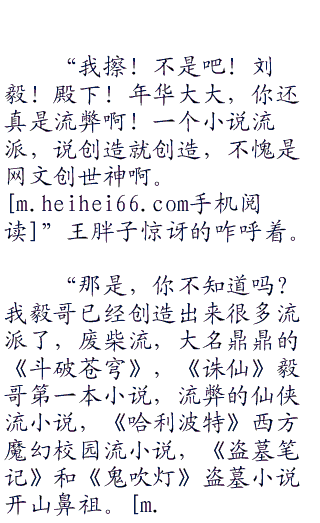 “我擦！不是吧！刘
毅！殿下！年华大大，你还
真是流弊啊！一个小说流
派，说创造就创造，不愧是
网文创世神啊。
[m.heihei66.com手机阅
读]”王胖子惊讶的咋呼着。
“那是，你不知道吗？
我毅哥已经创造出来很多流
派了，废柴流，大名鼎鼎的
《斗破苍穹》，《诛仙》毅
哥第一本小说，流弊的仙侠
流小说，《哈利波特》西方
魔幻校园流小说，《盗墓笔
记》和《鬼吹灯》盗墓小说
开山鼻祖。[m.